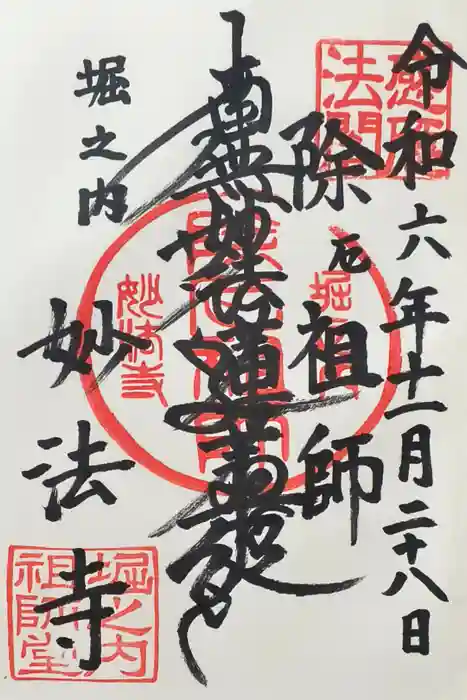 令和六年十一月二十八日
除厄祖師
南無妙法蓮華経
堀之内
妙法寺
堀之内
妙法寺
堀之内
祖師堂